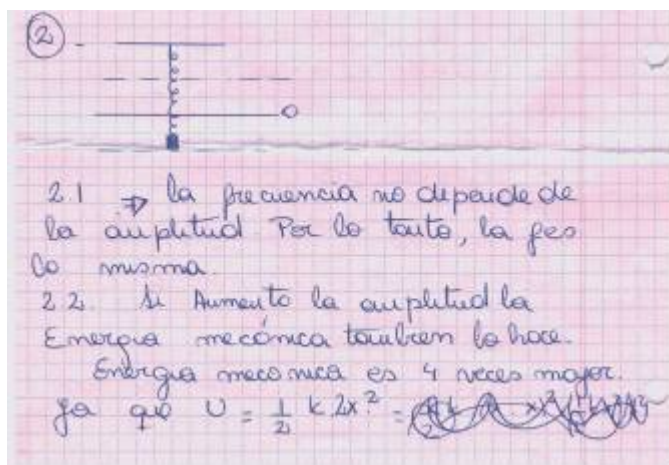 2 -
0
2.1 → la frecuencia no depende de
la amplitud. Por lo tanto, la f es
la misma.
2.2. Si Aumento la amplitud la
Energia mecánica tambien lo hace.
Energia mecanica es 4 veces mayor.
ya que U = 1/2 k 2x² =